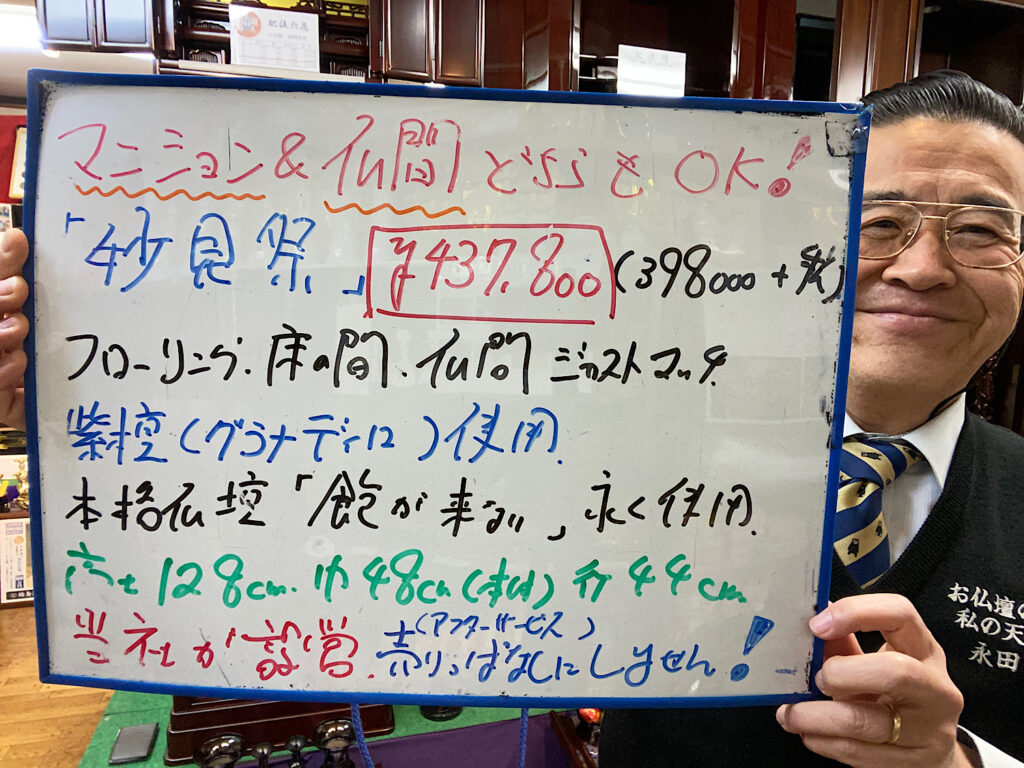 肥後六花
マンション&仏間どちらもOK!
「妙見祭」¥437.800(398000+税)
フローリング.床の間.仏間ジャストマッチ.
紫檀(グラナディロ)使用.
本格仏壇「飽が来ない」永く使用.
高さ128cm.巾48cm(本体)行44cm
当社が設営.売りっぱなしにしません!
(アフターサービス)
お仏壇の
私の天
永田